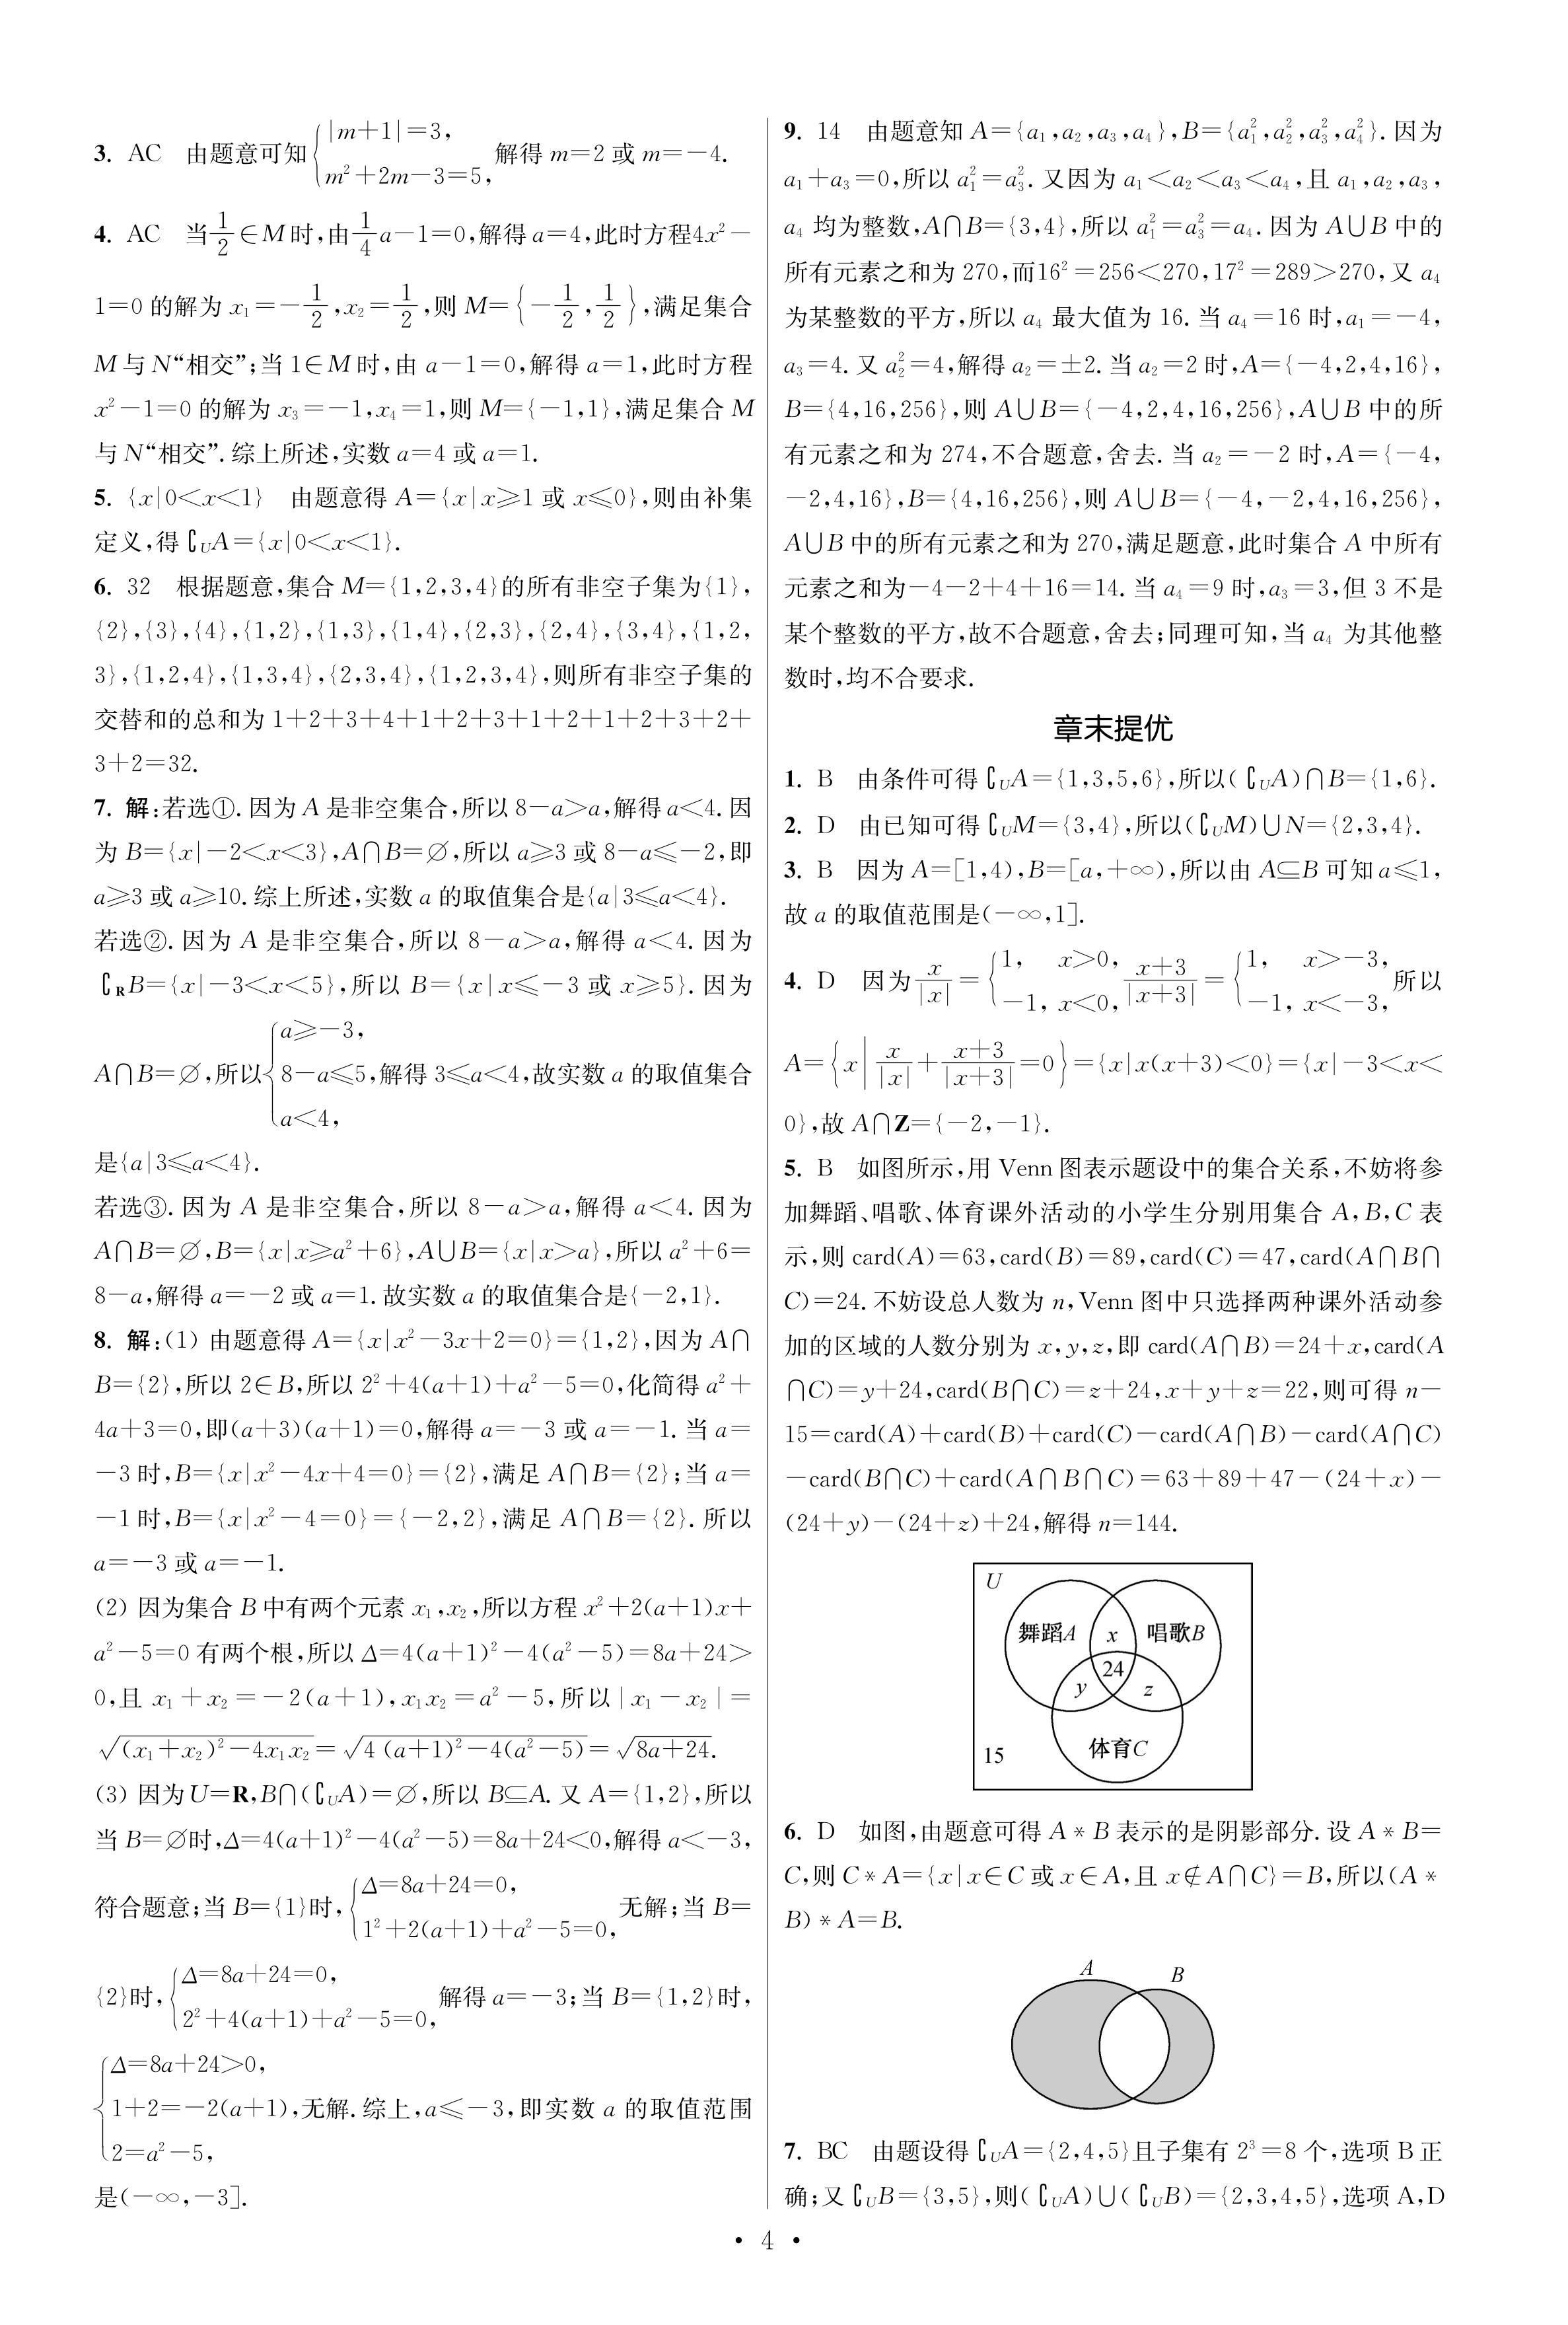 3. AC 由题意可知{|m+1|=3, m²+2m-3=5, 解得m=2或m=-4.
4. AC 当1/2∈M时,由1/4a-1=0,解得a=4,此时方程4x²-
1=0的解为x₁=-1/2,x₂=1/2,则M={-1/2,1/2},满足集合
M与N“相交”;当1∈M时,由a-1=0,解得a=1,此时方程
x²-1=0的解为x₃=-1,x₄=1,则M={-1,1},满足集合M
与N“相交”.综上所述,实数a=4或a=1.
5. {x|0<x<1} 由题意得A={x|x≥1或x≤0},则由补集
定义,得∁UA={x|0<x<1}.
6. 32 根据题意,集合M={1,2,3,4}的所有非空子集为{1},
{2},{3},{4},{1,2},{1,3},{1,4},{2,3},{2,4},{3,4},{1,2,
3},{1,2,4},{1,3,4},{2,3,4},{1,2,3,4},则所有非空子集的
交替和的总和为1+2+3+4+1+2+3+1+2+1+2+3+2+
3+2=32.
7. 解:若选①.因为A是非空集合,所以8-a>a,解得a<4.因
为B={x|-2<x<3},A∩B=∅,所以a≥3或8-a≤-2,即
a≥3或a≥10.综上所述,实数a的取值集合是{a|3≤a<4}.
若选②.因为A是非空集合,所以8-a>a,解得a<4.因为
∁RB={x|-3<x<5},所以B={x|x≤-3或x≥5}.因为
A∩B=∅,所以{a≥-3, 8-a≤5, a<4, 解得3≤a<4,故实数a的取值集合
是{a|3≤a<4}.
若选③.因为A是非空集合,所以8-a>a,解得a<4.因为
A∩B=∅,B={x|x≥a²+6},A∪B={x|x>a},所以a²+6=
8-a,解得a=-2或a=1.故实数a的取值集合是{-2,1}.
8. 解:(1) 由题意得A={x|x²-3x+2=0}={1,2},因为A∩
B={2},所以2∈B,所以2²+4(a+1)+a²-5=0,化简得a²+
4a+3=0,即(a+3)(a+1)=0,解得a=-3或a=-1.当a=
-3时,B={x|x²-4x+4=0}={2},满足A∩B={2};当a=
-1时,B={x|x²-4=0}={-2,2},满足A∩B={2}.所以
a=-3或a=-1.
(2) 因为集合B中有两个元素x₁,x₂,所以方程x²+2(a+1)x+
a²-5=0有两个根,所以Δ=4(a+1)²-4(a²-5)=8a+24>
0,且x₁+x₂=-2(a+1),x₁x₂=a²-5,所以|x₁-x₂|=
√((x₁+x₂)²-4x₁x₂)=√(4(a+1)²-4(a²-5))=√(8a+24).
(3) 因为U=R,B∩(∁UA)=∅,所以B⊆A.又A={1,2},所以
当B=∅时,Δ=4(a+1)²-4(a²-5)=8a+24<0,解得a<-3,
符合题意;当B={1}时,{Δ=8a+24=0, 1²+2(a+1)+a²-5=0, 无解;当B=
{2}时,{Δ=8a+24=0, 2²+4(a+1)+a²-5=0, 解得a=-3;当B={1,2}时,
{Δ=8a+24>0, 1+2=-2(a+1), 2=a²-5, 无解.综上,a≤-3,即实数a的取值范围
是(-∞,-3].
9. 14 由题意知A={a₁,a₂,a₃,a₄},B={a₁²,a₂²,a₃²,a₄²}.因为
a₁+a₃=0,所以a₁²=a₃².又因为a₁<a₂<a₃<a₄,且a₁,a₂,a₃,
a₄均为整数,A∩B={3,4},所以a₁²=a₃²=a₄.因为A∪B中的
所有元素之和为270,而16²=256<270,17²=289>270,又a₄
为某整数的平方,所以a₄最大值为16.当a₄=16时,a₁=-4,
a₃=4.又a₂²=4,解得a₂=±2.当a₂=2时,A={-4,2,4,16},
B={4,16,256},则A∪B={-4,2,4,16,256},A∪B中的所
有元素之和为274,不合题意,舍去.当a₂=-2时,A={-4,
-2,4,16},B={4,16,256},则A∪B={-4,-2,4,16,256},
A∪B中的所有元素之和为270,满足题意,此时集合A中所有
元素之和为-4-2+4+16=14.当a₄=9时,a₃=3,但3不是
某个整数的平方,故不合题意,舍去;同理可知,当a₄为其他整
数时,均不合要求.
章末提优
1. B 由条件可得∁UA={1,3,5,6},所以(∁UA)∩B={1,6}.
2. D 由已知可得∁UM={3,4},所以(∁UM)∪N={2,3,4}.
3. B 因为A=[1,4),B=[a,+∞),所以由A⊆B可知a≤1,
故a的取值范围是(-∞,1].
4. D 因为x/|x|={1, x>0, -1, x<0, (x+3)/|x+3|={1, x>-3, -1, x<-3, 所以
A={x|x/|x|+(x+3)/|x+3|=0}={x|x(x+3)<0}={x|-3<x<
0},故A∩Z={-2,-1}.
5. B 如图所示,用Venn图表示题设中的集合关系,不妨将参
加舞蹈、唱歌、体育课外活动的小学生分别用集合A,B,C表
示,则card(A)=63,card(B)=89,card(C)=47,card(A∩B∩
C)=24.不妨设总人数为n,Venn图中只选择两种课外活动参
加的区域的人数分别为x,y,z,即card(A∩B)=24+x,card(A
∩C)=y+24,card(B∩C)=z+24,x+y+z=22,则可得n-
15=card(A)+card(B)+card(C)-card(A∩B)-card(A∩C)
-card(B∩C)+card(A∩B∩C)=63+89+47-(24+x)-
(24+y)-(24+z)+24,解得n=144.
U
舞蹈A x 唱歌B
24
y z
15 体育C
6. D 如图,由题意可得A*B表示的是阴影部分.设A*B=
C,则C*A={x|x∈C或x∈A,且x∉A∩C}=B,所以(A*
B)*A=B.
A B
7. BC 由题设得∁UA={2,4,5}且子集有2³=8个,选项B正
确;又∁UB={3,5},则(∁UA)∪(∁UB)={2,3,4,5},选项A,D
· 4 ·